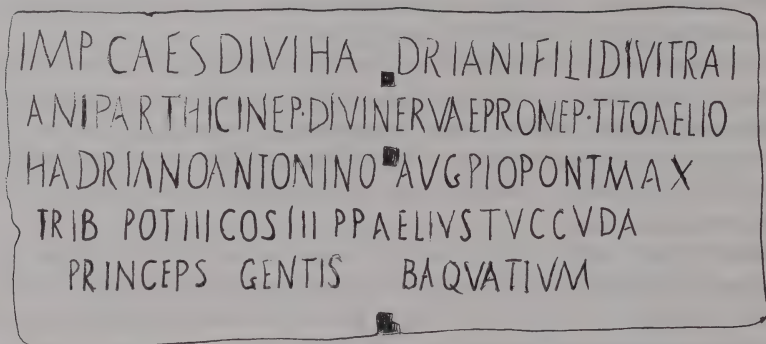 IMP CAES DIVI HA DRIANI FILI DIVI TRAI
ANI PARTHICI NEP·DIVI NERVAE PRONEP·TITO AELIO
HADRIANO ANTONINO AVG PIO PONT MAX
TRIB POT III COS III P P AELIVS TVCCVDA
PRINCEPS GENTIS BAQVATIVM